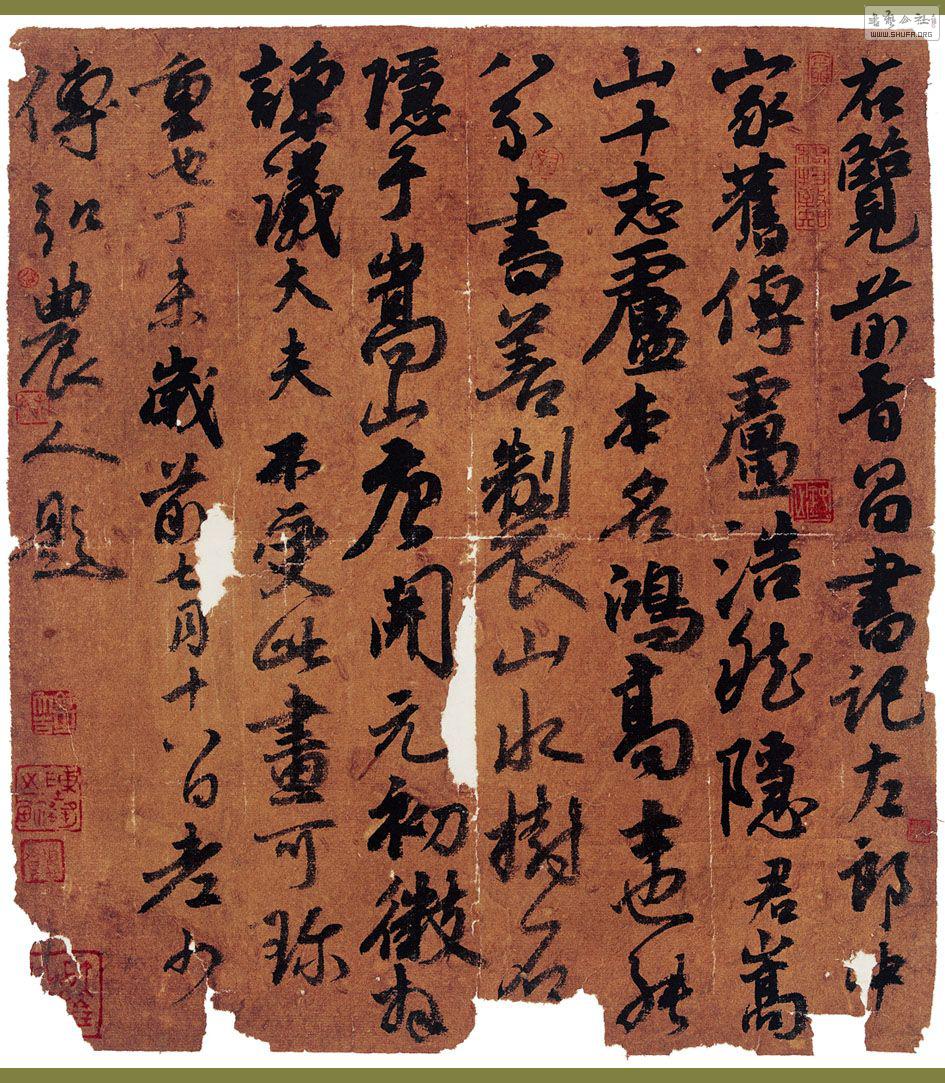 右覽前晉昌書記左郎中
家舊傳盧浩然隱君嵩
山十志盧本名鴻高士也能
八分書善製山水樹石
隱于嵩山唐開元初徵為
諫議大夫不受此畫可珍
重也丁未歲前七月十八日老少
傅弘農人題
WWW.SHUFA.ORG